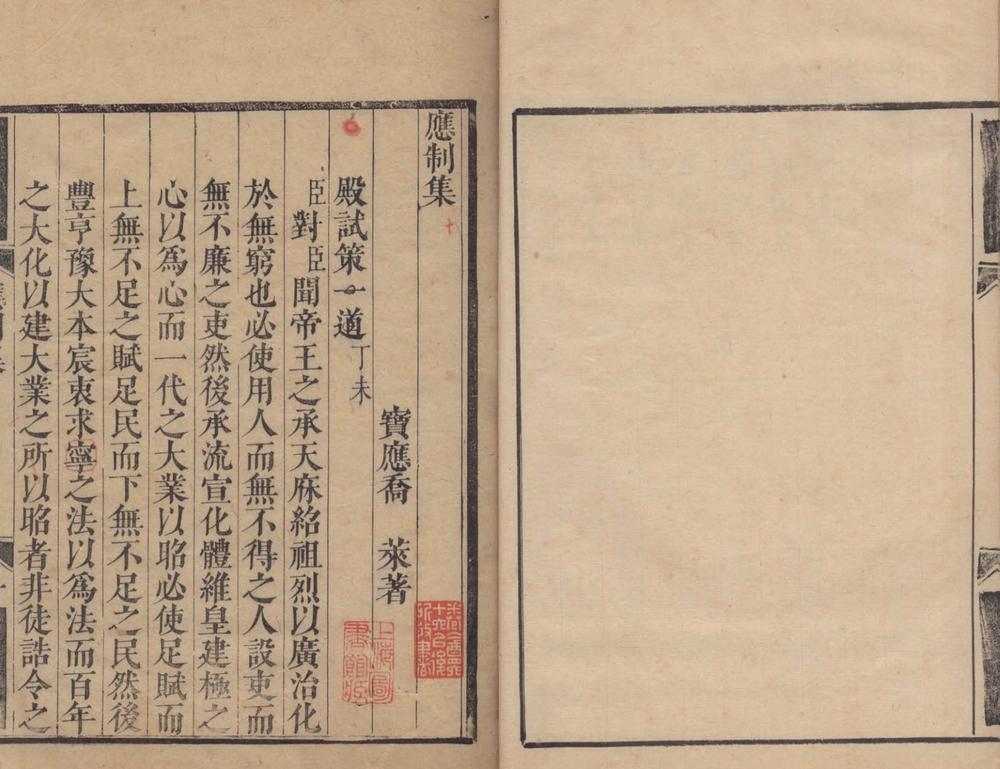 應制集
寶應喬 萊著
殿試策一道丁未
臣對臣聞帝王之承天庥紹祖烈以廣治化
於無窮也必使用人而無不得之人設吏而
無不廉之吏然後承流宣化體維皇建極之
心以爲心而一代之大業以昭必使足賦而
上無不足之賦足民而下無不足之民然後
豐亨豫大本宸衷求寧之法以爲法而百年
之大化以建大業之所以昭者非徒誥令之
上海圖書館藏